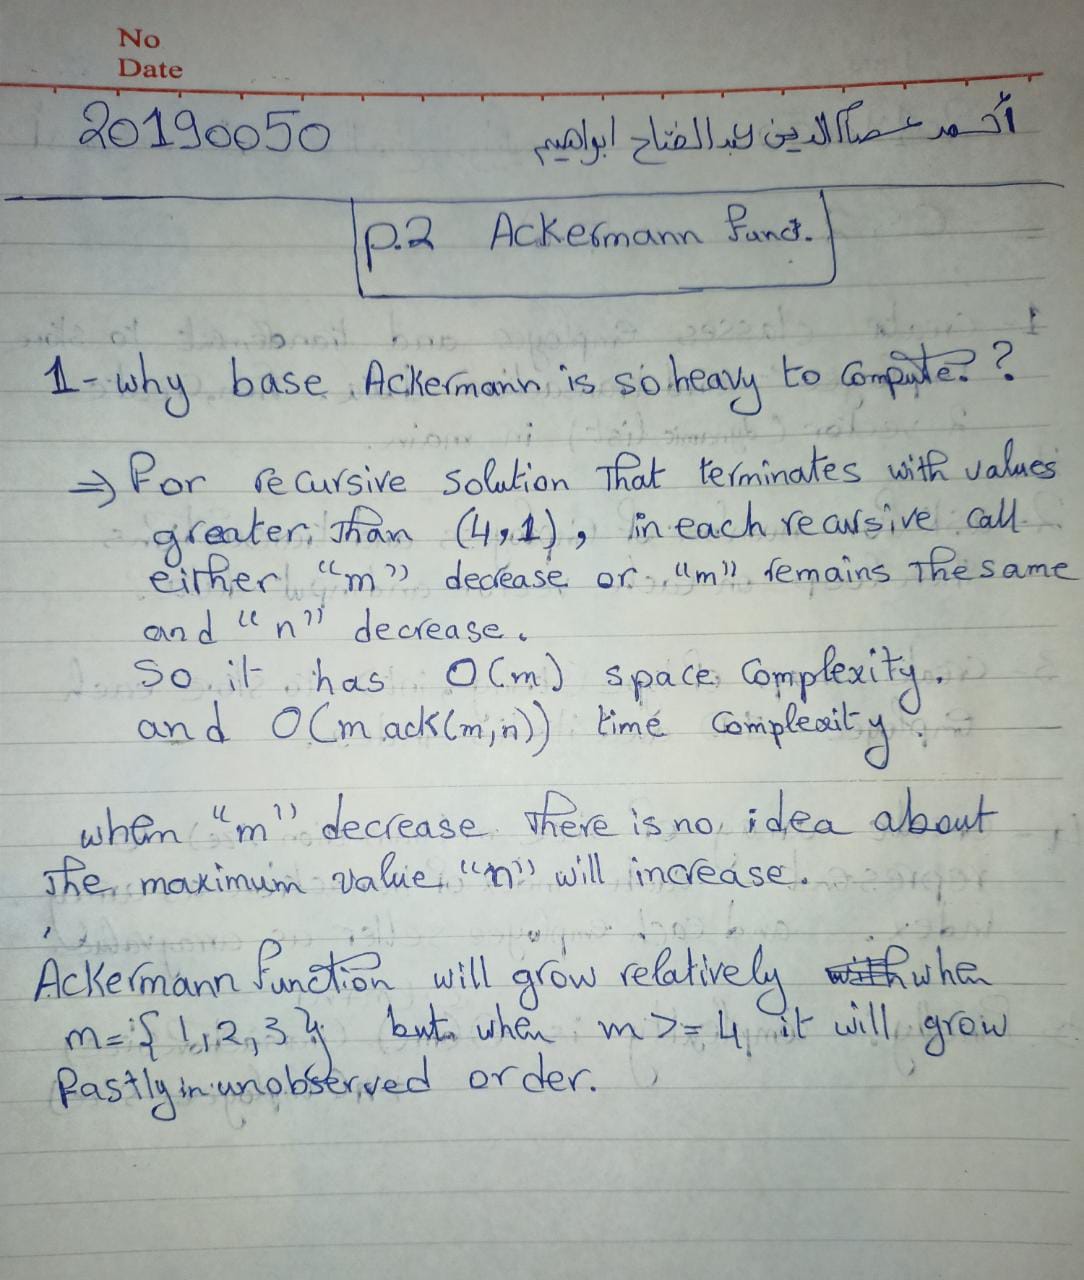 No
Date
20190050 أحمد عصام الدين عبد الفتاح ابراهيم
p.2 Ackermann funct.
1- why base Ackermann is so heavy to Compute??
⇒ For recursive solution that terminates with values
greater than (4,1), in each recursive call
either "m" decrease or "m" remains the same
and "n" decrease.
So it has O(m) space complexity.
and O(m ack(m,n)) time complexity.
when "m" decrease there is no idea about
the maximum value "n" will increase.
Ackermann function will grow relatively when
m={1,2,3} but when m >= 4 it will grow
fastly in unobserved order.